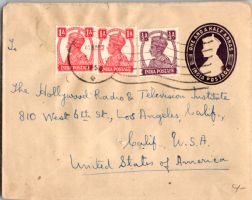 To
1A 1A ½A
INDIA POSTAGE INDIA POSTAGE INDIA POSTAGE
ONE AND A HALF ANNAS
INDIA POSTAGE
The Hollywood Radio & Television Institute
810 West 6th St., Los Angeles, Calif.,
Calif. U.S.A.
United States of America